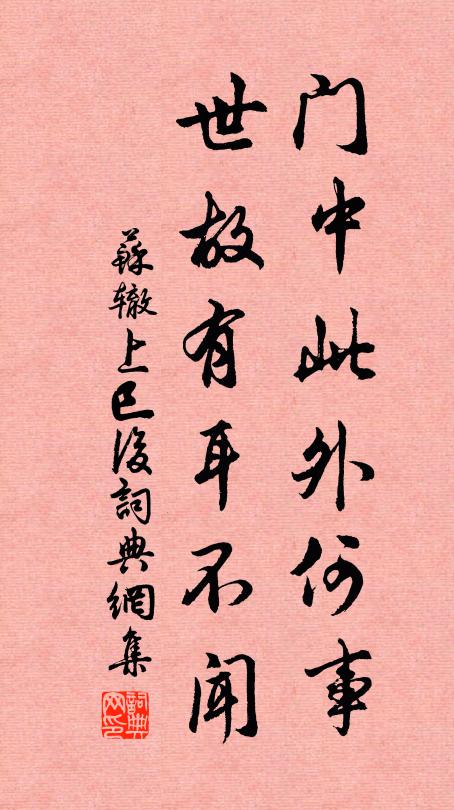 门中此外何事
世故有耳不闻
蘇辙上巳後詞典網集
詞典网印